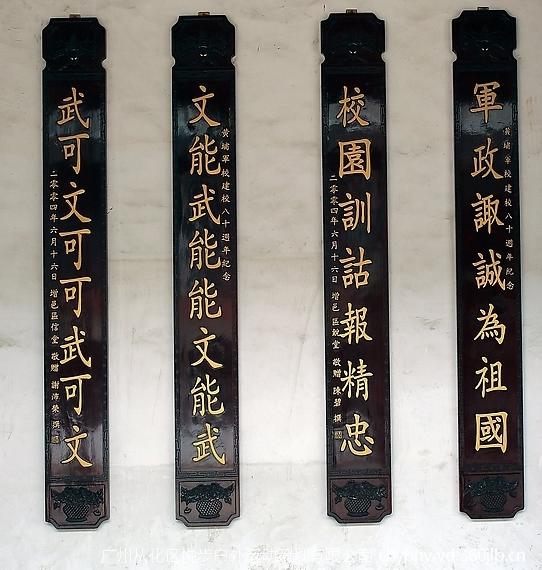 軍政諏誠為祖國
黃埔軍校建校八十週年纪念
校園訓詁報精忠
二零零四年六月十六日 增邑區蛻堂 敬贈 陳碧 撰
文能武能能文能武
黃埔軍校建校八十週年纪念
武可文可可武可文
二零零四年六月十六日 增邑區信堂 敬贈 謝沛榮 撰
广州从化区